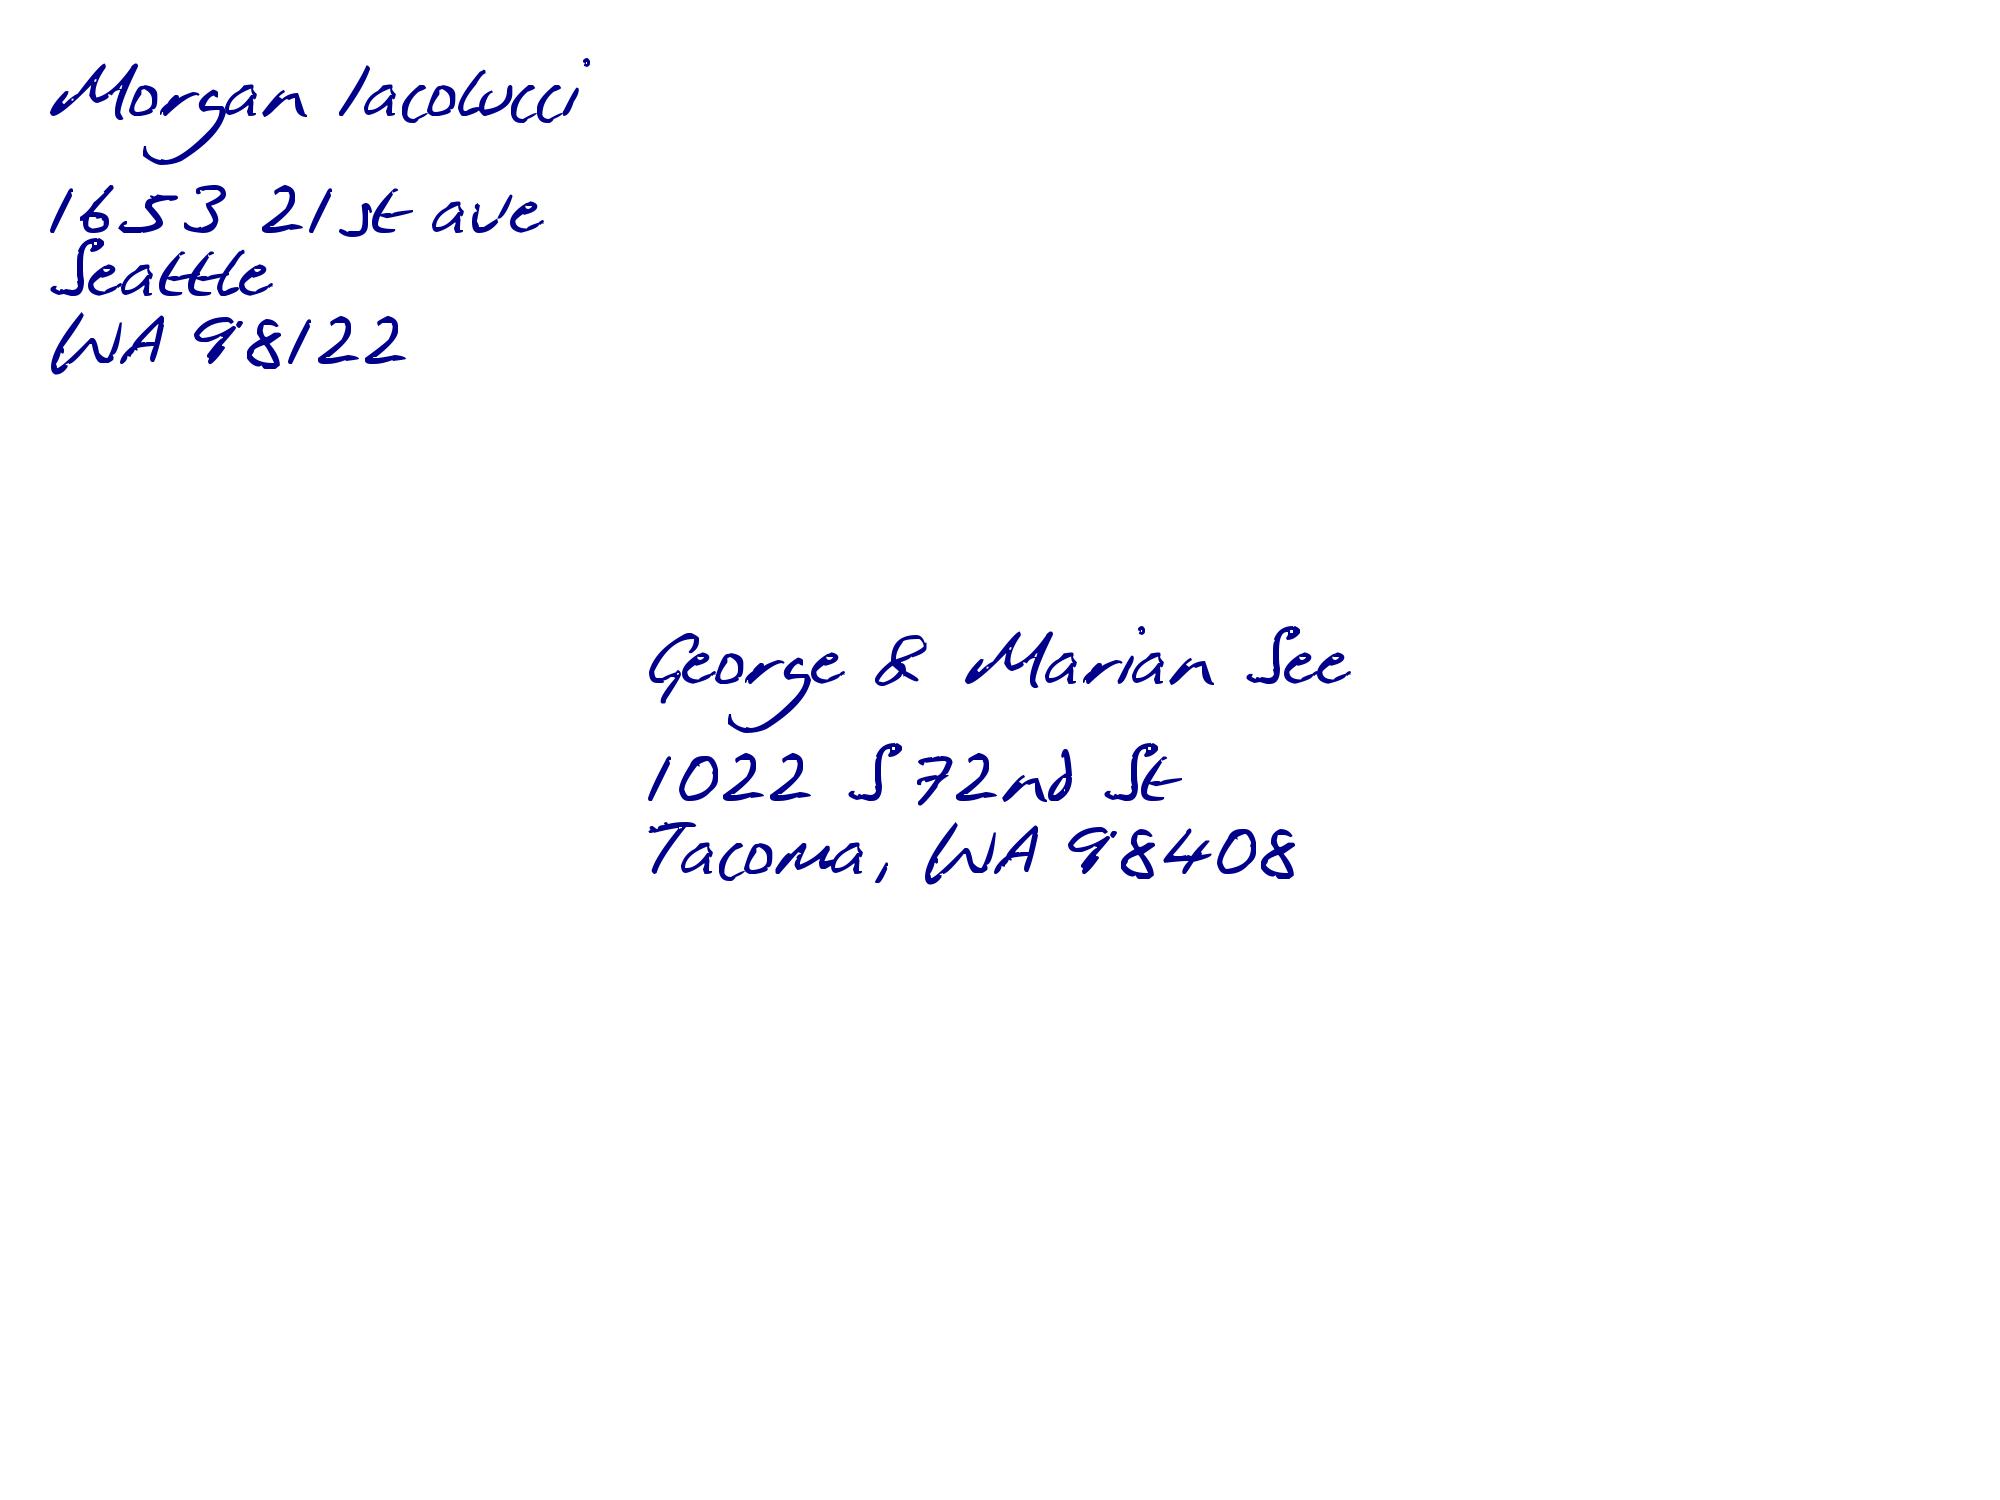 Morgan Iacolucci
1653 21st ave
Seattle
WA 98122
George & Marian See
1022 S 72nd St
Tacoma, WA 98408